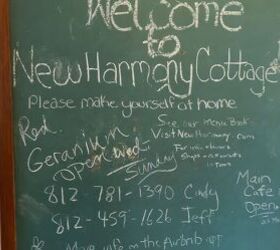 Welcome
to
New Harmony Cottage
Please make yourself at home
Red
Geranium
Open Wed -
Sunday
See our menu Book
Visit New Harmony.com
For info where
Shops and
812-781-1390 Cindy
812-459-1626 Jeff
Main
Cafe
Open
More info on the Airbnb app